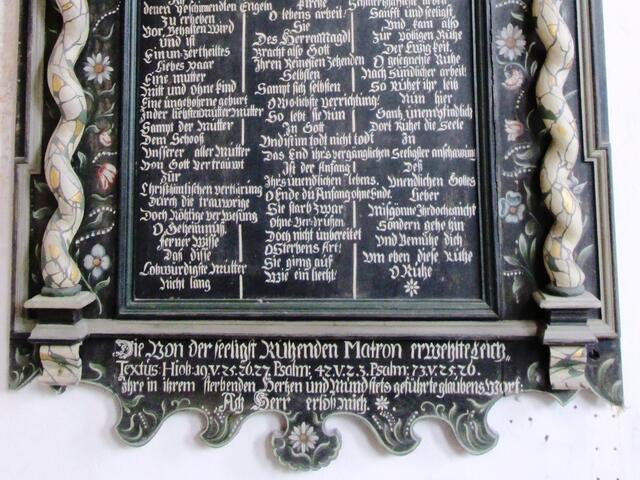 denen verstimmten Engeln
Zu erheben
Vor, Behalten Wird
und ist
Ein un-zertheiltes
liebes paar
Eine mutter
Mitt und ohne kind
Eine ungebohrne geburt
In der liebsten Mutter Mutter
Sampt der Mutter
Dem Schooß
Unsserer aller Mutter
Von Gott Vertrauwt
Zur
Christkümlischen verklärung
Durch die traurwige
Doch Nöhtige verwesung
O Geheimnuß
ferner Wisse
Das dise
Lobwürdigste Mutter
Nicht lang
Kirche
O lebens arbeit!
Sie
Des Herren Magd
Bracht also Gott
Ihren Reinesten Zehenden
Selbsten
Sampt sich selbsten
O Wohlichste Verrichtung!
So lebt sie Nun
In Gott
Und ist im todt nicht todt
Das End ihrs vergänglichen
Ist der Anfang
Ihrs unendlichen lebens.
O Ende du Anfang ohne Ende.
Sie starb zwar
ohne Verdruhm
Doch nicht unbereitet
O Sterbens Art!
Sie gieng auf
Wie ein hecht!
Schmertzhaffste arbeit
Sanfft und seeligst
Und kam also
Zur völligen Ruhe
Der Ewigkeit.
O gesegnete Ruhe
Nach Sündlicher arbeit!
So Ruhet ihr leib
Nun hier
Gantz unempfindlich
Dort Ruhet die Seele
In
Seeligster anschawung
Deß
Unendlichen Gottes
Lieber
Misgönne Ihr doch es nicht
Sondern gehe hin
Und Bemühe dich
Um eben diese Ruhe
O Ruhe
Die Von der seeligst Ruhenden Matron erwehlte Leich-
Textus: Hiob: 19. V. 25. 26. 27. Psalm: 42. V. 2. 3. Psalm: 73. V. 25. 26.
Ihre in ihrem sterbenden Hertzen und Mund stets geführte glaubens Wort:
Ach Herr erlöß mich.